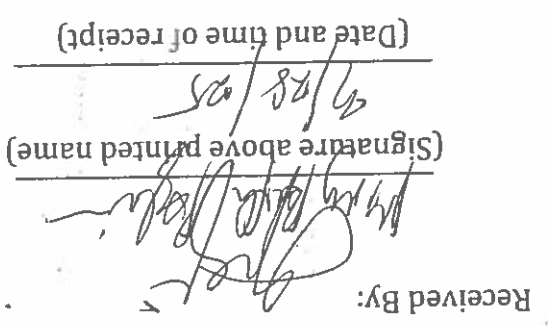 Received By:
(Signature above printed name)
/28/25
(Date and time of receipt)